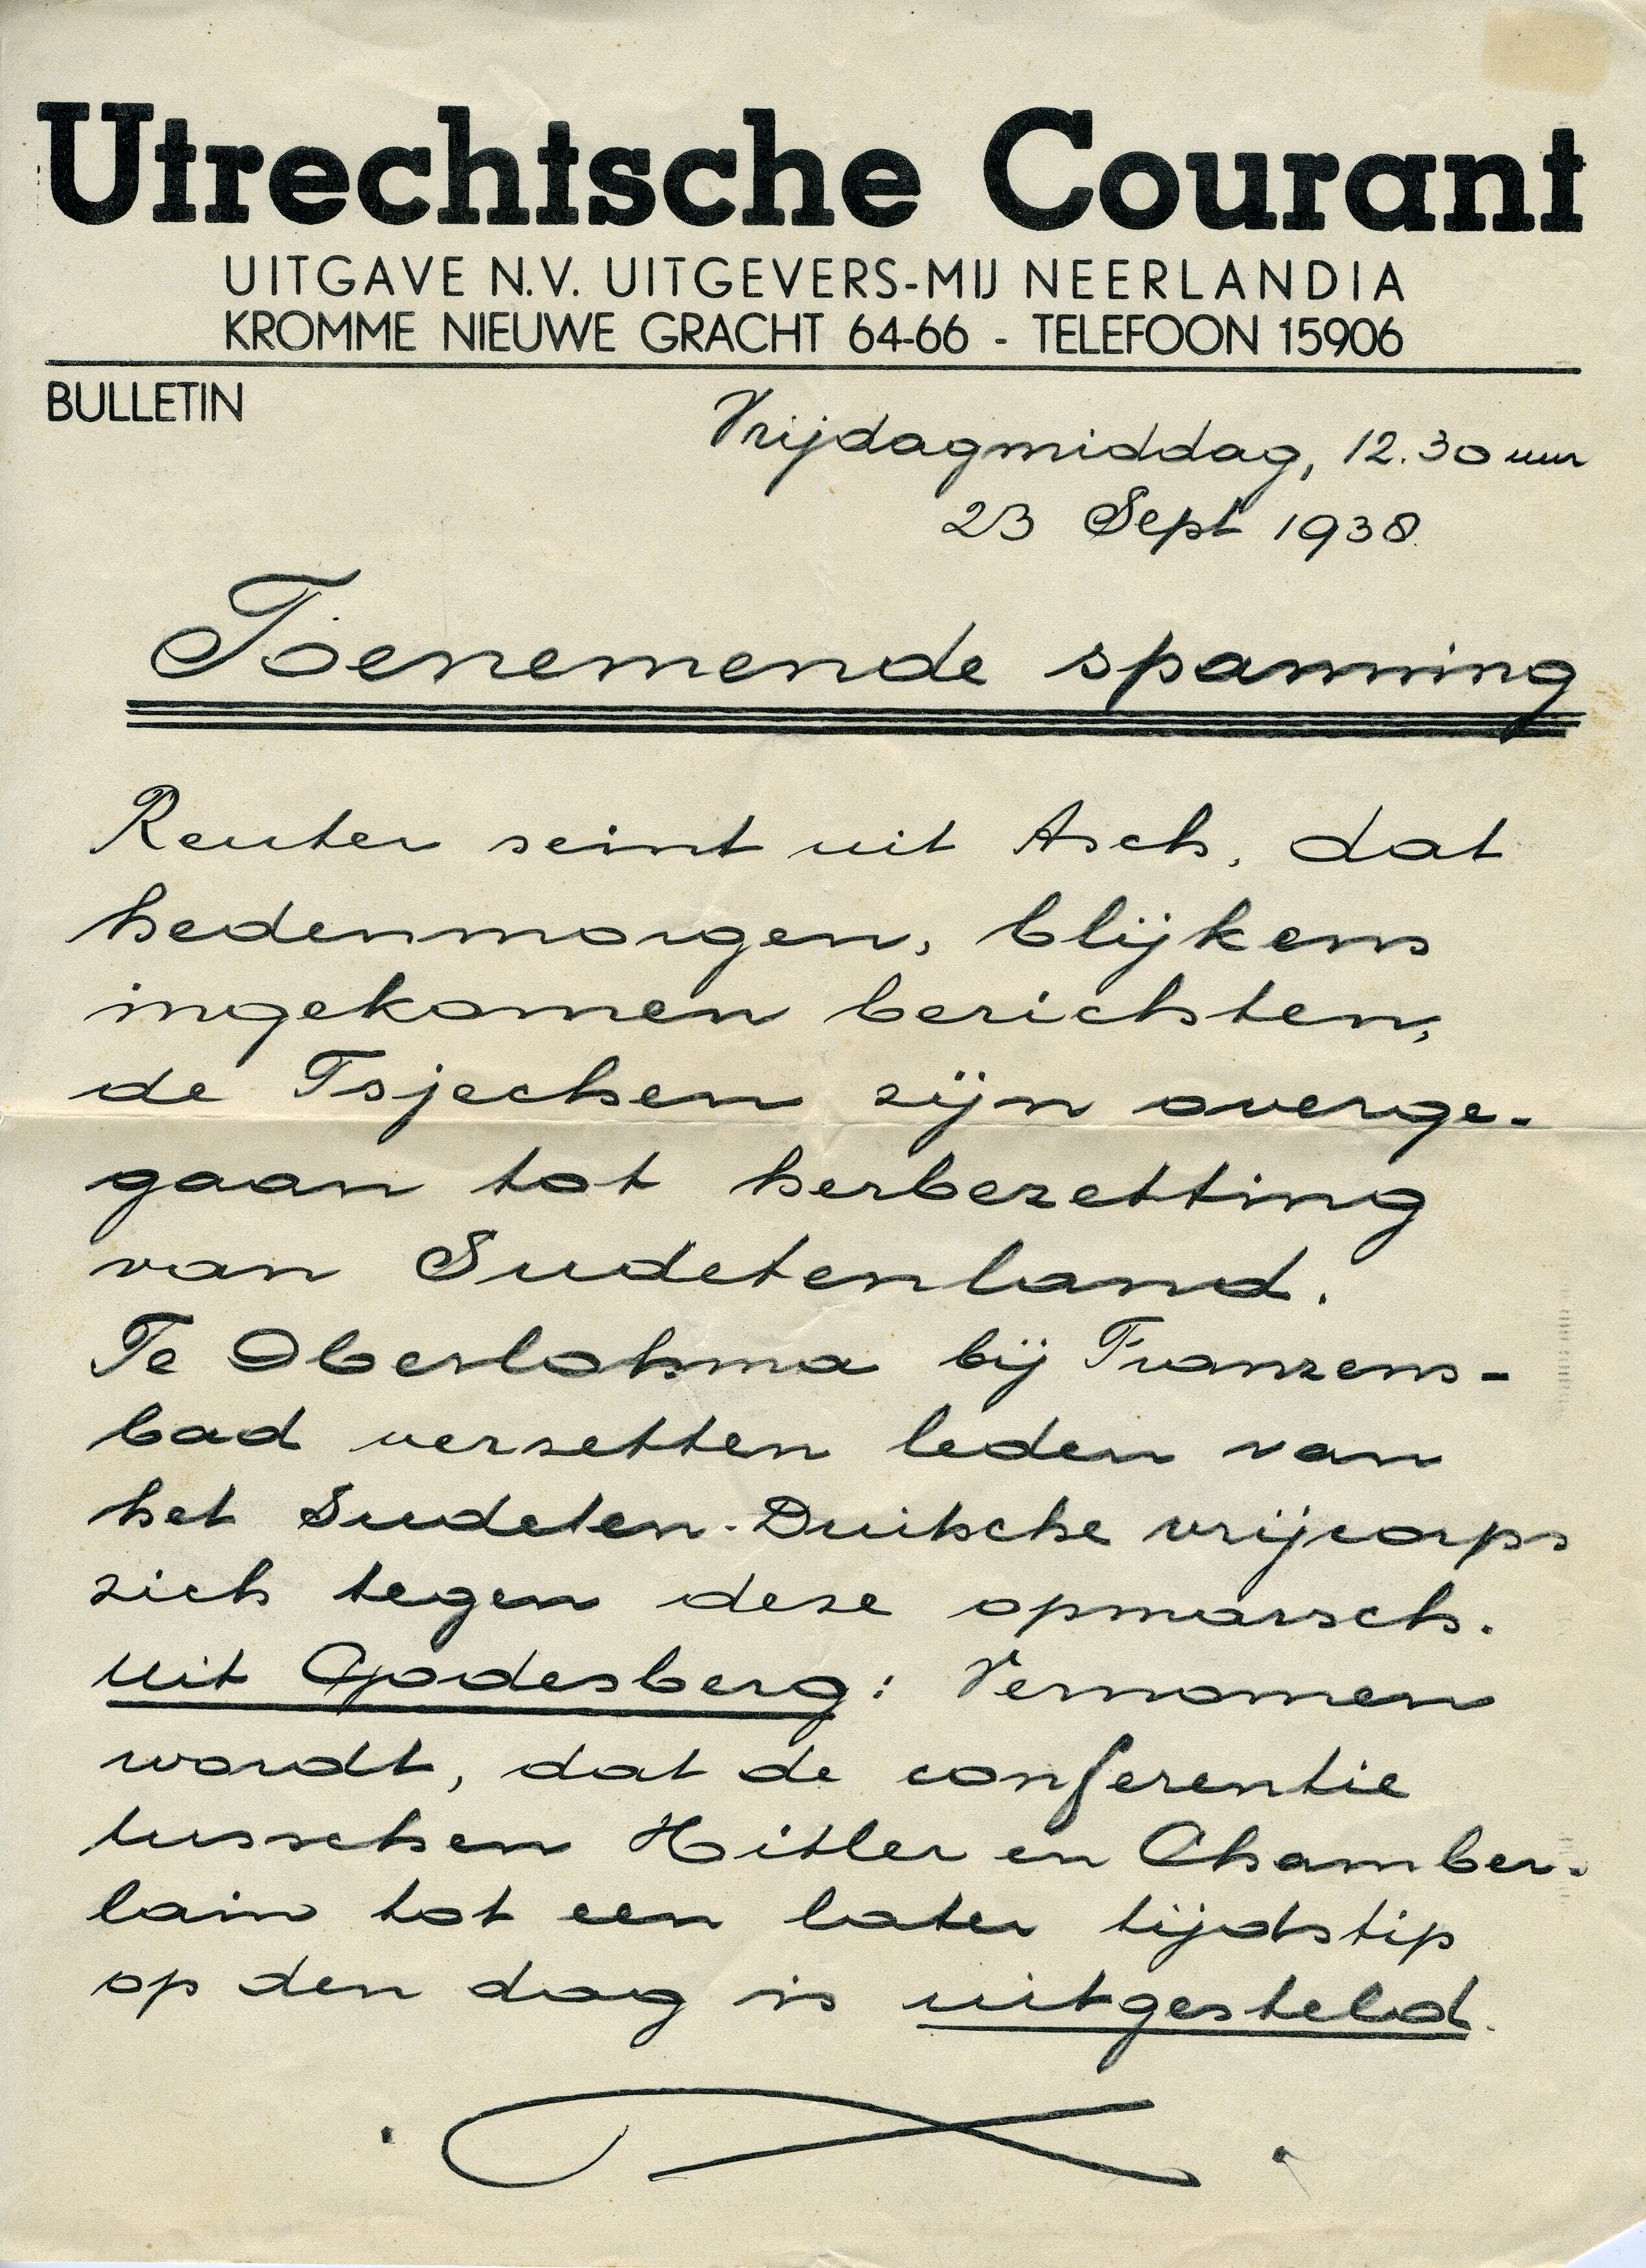 Utrechtsche Courant
UITGAVE N.V. UITGEVERS-MIJ NEERLANDIA
KROMME NIEUWE GRACHT 64-66 - TELEFOON 15906
BULLETIN
Vrijdagmiddag, 12.30 uur
23 Sept 1938.
Toenemende spanning
Reuter seint uit Asch, dat
hedenmorgen, blijkens
ingekomen berichten,
de Tsjechen zijn overge-
gaan tot herbezetting
van Sudetenland.
Te Oberlohma bij Franzens-
bad verzetten leden van
het Sudeten-Duitsche vrijcorps
zich tegen deze opmarsch.
Uit Godesberg: Vernomen
wordt, dat de conferentie
tusschen Hitler en Chamber-
lain tot een later tijdstip
op den dag is uitgesteld.